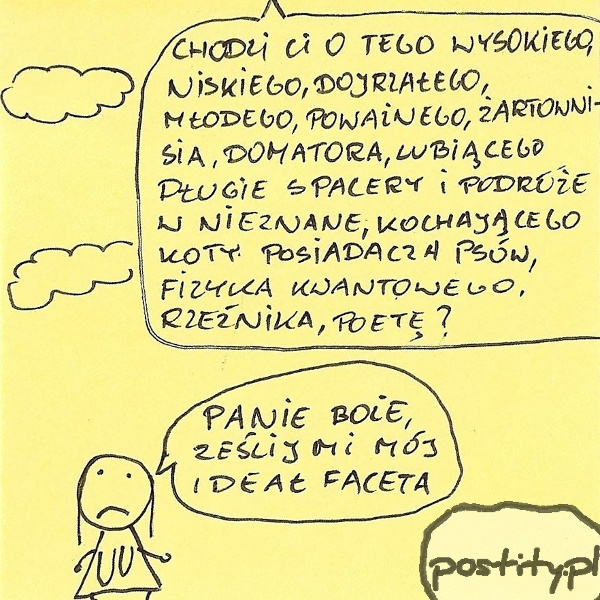 CHODZI CI O TEGO WYSOKIEGO,
NISKIEGO, DOJRZAŁEGO,
MŁODEGO, POWAŻNEGO, ŻARTOWNI-
SIA, DOMATORA, LUBIĄCEGO
DŁUGIE SPACERY I PODRÓŻE
W NIEZNANE, KOCHAJĄCEGO
KOTY POSIADACZA PSÓW,
FIZYKA KWANTOWEGO,
RZEŹNIKA, POETĘ?
PANIE BOŻE,
ZEŚLIJ MI MÓJ
IDEAŁ FACETA
postity.pl